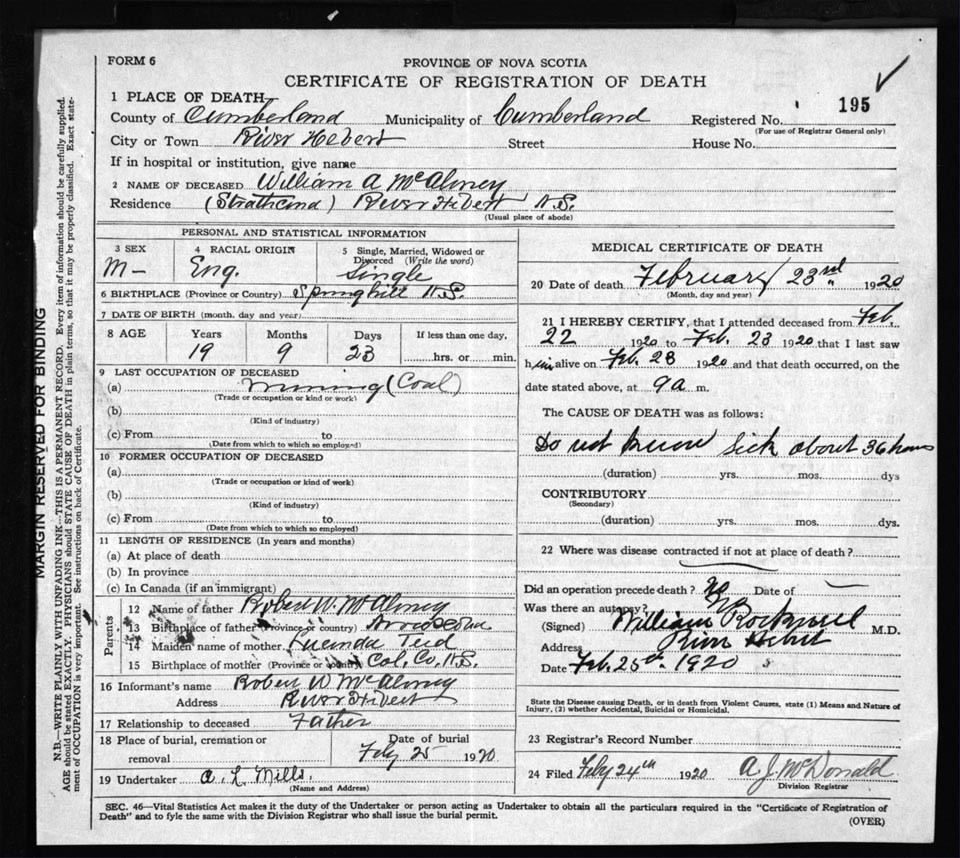 FORM 6
PROVINCE OF NOVA SCOTIA
CERTIFICATE OF REGISTRATION OF DEATH
195 ✓
1 PLACE OF DEATH
County of Cumberland Municipality of Cumberland Registered No.
(For use of Registrar General only)
City or Town River Hebert Street House No.
If in hospital or institution, give name
2 NAME OF DECEASED William A McAloney
Residence (Strathcona) River Hebert N.S.
(Usual place of abode)
PERSONAL AND STATISTICAL INFORMATION
3 SEX M-
4 RACIAL ORIGIN Eng.
5 Single, Married, Widowed or Divorced (Write the word) Single
6 BIRTHPLACE (Province or Country) Springhill N.S.
7 DATE OF BIRTH (month, day and year)
8 AGE Years Months Days If less than one day,
19 9 23 hrs. or min.
9 LAST OCCUPATION OF DECEASED
(a) Mining (Coal)
(Trade or occupation or kind or work)
(b)
(Kind of industry)
(c) From to
(Date from which to which so employed)
10 FORMER OCCUPATION OF DECEASED
(a)
(Trade or occupation or kind of work)
(b)
(Kind of industry)
(c) From to
(Date from which to which so employed)
11 LENGTH OF RESIDENCE (In years and months)
(a) At place of death
(b) In province
(c) In Canada (if an immigrant)
Parents
12 Name of father Robert W. McAloney
13 Birthplace of father (Province or country)
14 Maiden name of mother Lucinda
15 Birthplace of mother (Province or country) Col. Co. N.S.
16 Informant's name Robert W McAloney
Address River Hebert
17 Relationship to deceased Father
18 Place of burial, cremation or removal
Date of burial
Feby 25 1920
19 Undertaker A. L. Mills.
(Name and Address)
MEDICAL CERTIFICATE OF DEATH
20 Date of death February 23rd 1920
(Month, day and year)
21 I HEREBY CERTIFY, that I attended deceased from Feb.
22 1920 to Feb. 23 1920 that I last saw
him alive on Feb. 23 1920 and that death occurred, on the
date stated above, at 9 a m.
The CAUSE OF DEATH was as follows:
Do not know Sick about 36 hours
(duration) yrs. mos. dys
CONTRIBUTORY
(Secondary)
(duration) yrs. mos. dys.
22 Where was disease contracted if not at place of death?
Did an operation precede death? No Date of
Was there an autopsy? No
(Signed) William Rockwell M.D.
Address River Hebert
Date Feb. 25th 1920
State the Disease causing Death, or in death from Violent Causes, state (1) Means and Nature of
Injury, (2) whether Accidental, Suicidal or Homicidal.
23 Registrar's Record Number
24 Filed Feby 24th 1920 A J. McDonald
Division Registrar
SEC. 46—Vital Statistics Act makes it the duty of the Undertaker or person acting as Undertaker to obtain all the particulars required in the "Certificate of Registration of
Death" and to fyle the same with the Division Registrar who shall issue the burial permit.
(OVER)
MARGIN RESERVED FOR BINDING
N.B.—WRITE PLAINLY WITH UNFADING INK—THIS IS A PERMANENT RECORD. Every item of information should be carefully supplied.
AGE should be stated EXACTLY. PHYSICIANS should STATE CAUSE OF DEATH in plain terms, so that it may be properly classified. Exact state-
ment of OCCUPATION is very important. See instructions on back of Certificate.